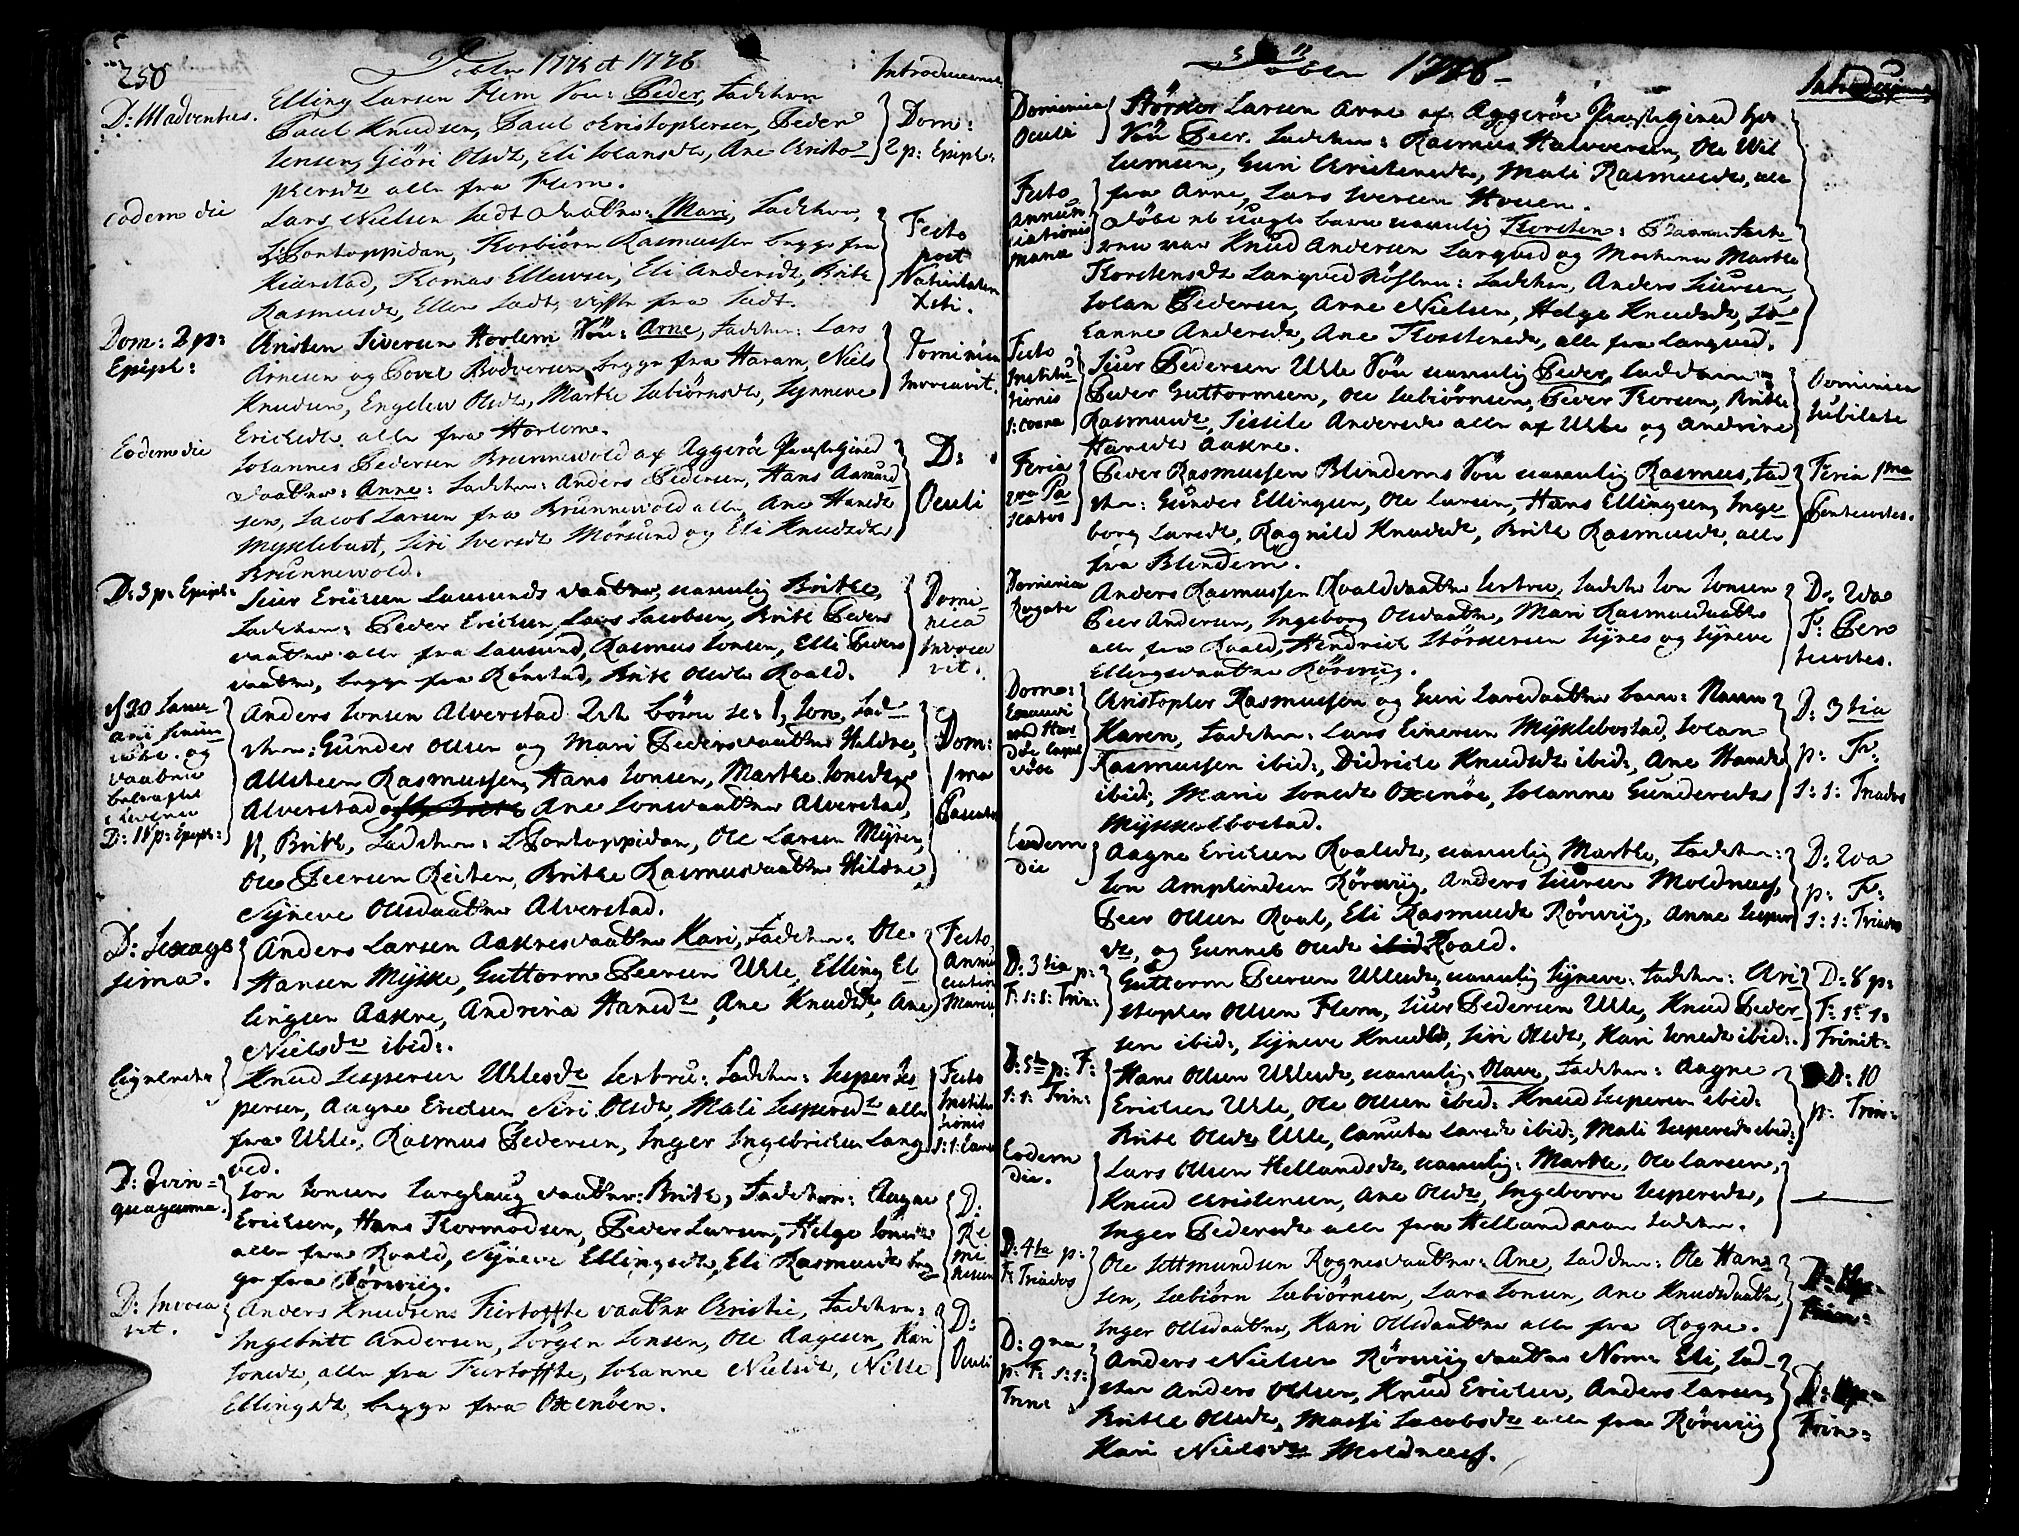 250
Døbte 1775 et 1776
Introducerede
D: III adventus.
Elling Larsen Flem Søn: Peder, Fadderne
Paul Knudsen, Paul Christophersen, Peder
Jensen, Giøri Olsdr, Eli Johansdr, Ane Christo-
phersdr alle fra Flem.
Dom:
2 p: Epiph:
eodem die
Lars Nielsen Sædt Daatter: Mari, Fadderne,
Pontoppidan, Thorbiørn Rasmussen begge fra
Kierstad, Thomas Ellewsen, Eli Andersdr, Brite
Rasmusdr, Ellen Sædt, fra Sædt.
Festo
post
Nativitatem
Xsti.
Dom: 2 p:
Epiph:
Christen Siversen Horlem Søn: Arne, Fadderne: Lars
Arnesen og Povel Rødversen begge fra Haram, Niels
Knudsen, Engelev Olsdr, Marthe Isbiørnsdr, Synneve
Erichsdr alle fra Horlem.
Dominica
Invocavit.
Eodem die
Johannes Pedersen Brunnewold af Aggerøe Præstegield
Daatter: Anne: Fadderne: Anders Pedersen, Hans Aamund-
sen, Jacob Larsen fra Brunnewold alle, Ane Hansdr
Myklebust, Siri Iversdr Mørsund og Eli Knudsdr
Brunnewold.
D:
Oculi
D: 3 p: Epiph:
Siur Erichsen Lausunds Daatter, namnlig Brithe,
Fadderne: Peder Erichsen, Lars Jacobsen, Brite Peders
daatter alle fra Lausund, Rasmus Jonsen, Elli Peders
daatter, begge fra Rønstad, Brite Olsdr Roald.
Domi-
nica
Invoca
vit.
d 20 Janu-
arii
døbt. og
Daaben
bekræftet
i Levene
D: 16 p: Epiph:
Anders Jonsen Alverstad 2de børn se: 1, Jon, Fad-
derne: Gunder Olsen og Mari Pedersdaatter Hildre,
Allsteen Rasmussen, Hans Jonsen, Marthe Jonsdr
Alverstad Ane Jonsdaatter Alverstad,
II, Brite, Fadderne: Pontoppidan, Ole Larsen Myren,
Ole Peersen Reiten, Brithe Rasmusdaatter Hildre,
Synneve Olsdaatter Alverstad.
Dom:
1ma
D: Sexage
sima.
Anders Larsen Aaknes Daatter Kari, Fadderne: Ole
Hansen Mykke, Guttorm Peersen Uhle, Elling El-
lingsen Aakne, Andrina Hansdr, Ane Knudsdr, Ane
Nielsdr ibid:.
Festo
Annun
ciation
Mariæ
Knud Jespersen Uhlesdr Jertru: Fadderne: Jesper Jes
persen, Aagne Erichsen, Siri Olsdr, Mali Jespersdr alle
fra Uhle, Rasmus Pedersen, Inger Ingebrichsen Lang
ved.
Festo
Institu
tionis
S: S: Cænæ
D: Qvin-
quagesima.
Jon Jonsen Langhaug Daatter: Brite, Fadderne: Aagne
Erichsen, Hans Thormodsen, Peder Larsen, Helge Jonsdr
alle fra Roald, Synneve Ellingsdr, Eli Rasmusdr beg-
ge fra Rørvig.
D:
Re
mi
niscere
D: Invoca
vit.
Anders Knudsens Fiørtoffte Daatter Christie, Fadderne:
Ingebritt Andersen, Jørgen Jonsen, Ole Aagesen, Kari
Jonsdr, alle fra Fiørtoffte, Johanne Nielsdr, Nille
Ellingsdr, begge fra Oxenøen.
D:
Oculi
Døbte 1776
Introducerede
Dominica
Oculi
Størker Larsen Arne af Aggerøe Præstegield hans
Søn Peer. Fadderne: Rasmus Halvorsen, Ole Wil
lumsen, Guri Christensdr, Mali Rasmusdr, alle
fra Arne, Lars Iversen Houen.
Festo
annun
ciationis
Mariæ
Døbt et uægte barn namnlig Thorsten: Fade-
ren var Knud Andersen Langved og Moderen Marthe
Thorstensdr Langved Fadderne, Anders Siursen,
Johan Pedersen, Arne Nielsen, Helge Knudsdr, Jo-
hanne Andersdr, Ane Thorstensdr, alle fra Langved.
Festo
Institu-
tionis
S: Cænæ
Siur Pedersen Uhle Søn namnlig Peder, Fadderne:
Peder Guttormsen, Ole Isbiørnsen, Peder Thorsen, Brithe
Rasmusdr, Sissile Andersdr alle af Uhle og Andrine
Hansdr Aakne.
Dominica
Jubilate
Feria
2da Pa
scatos
Peder Rasmussen Blindems Søn namnlig Rasmus, Fad
derne: Gunder Ellingsen, Ole Larsen, Hans Ellingsen, Inge-
borg Larsdr, Ragnild Knudsdr, Brite Rasmusdr, alle
fra Blindem.
Feria 1ma
Pentecostes.
Dominica
Rogate
Anders Rasmussen Roald Daatter Jertru, Fadderne Jon Jonsen
Peer Andersen, Ingeborg Olsdaatter, Mari Rasmusdaatter
alle fra Roald, Hendrich Størkersen Synes og Synneve
Ellingsdaatter Rørvig.
D: 2da
F: Pen
tecostes.
Dom:
Exaudi
Christopher Rasmussen og Guri Larsdaatter barn: Navn
Karen, Fadderne: Lars Einersen Myklebostad, Johan
Rasmussen ibid:, Didrich Knudsdr ibid:, Ane Hansdr
ibid:, Marie Jonsdr Oxenøe, Johanne Gundersdr
Myklebostad.
D: 3tia
p: F:
S: S: Triados
Eodem
die
Aagne Erichsen Roalsdr, namnlig Marthe, Fadderne:
Jon Amphindsen Rørvig, Anders Siursen Moldnæs,
Peer Olsen Roal, Eli Rasmusdr Rørvig, Anne Jesper
dr, og Gunnel Olsdr Roald.
D: 2da
p: F:
S: S: Triados
D: 3tia p:
F: S: S: Trin:
Guttorm Peersen Uhlesdr, namnlig Synneve: Fadderne: Chri
stopher Olsen Flem, Siur Pedersen Uhle, Knud Peder-
sen ibid:, Synneve Knudsdr, Siri Olsdr, Kari Jonsdr ibid:.
D: 8 p:
F: S: S:
Trinit:
D: 5te p: F:
S: S: Trin:
Hans Olsen Uhlesdr, namnlig: Olave, Fadderne: Aagne
Erichsen Uhle, Ole Olsen ibid: Knud Jespersen ibid:
Brite Olsdr Uhle, Canuta Larsdr ibid:, Mali Jespersdr ibid:
D: 10
p: Trin:
Eodem
die.
Lars Olsen Hellandsdr, namnlig: Marthe, Ole Larsen,
Knud Christensen, Ane Olsdr, Ingeborre Jespersdr,
Inger Pedersdr alle fra Helland Fadderne.
D: 4ta p:
F: Triados
Ole Settmundsen Rognes Daatter: Ane, Fadderne: Ole Han-
sen, Isbiørn Isbiørnsen, Lars Jonsen, Ane Knudsdaatter,
Inger Olsdaatter, Kari Olsdaatter alle fra Rogne.
D: 9na
p: F: S: S:
Trin:
Anders Nielsen Rørvig Daatter Nom: Eli, Fad-
dere Anders Olsen, Knud Erichsen, Anders Larsen,
Brithe Olsdr, Massi Jacobsdr alle fra Rørvig
Kari Nielsdr Moldnæs.
Trin: